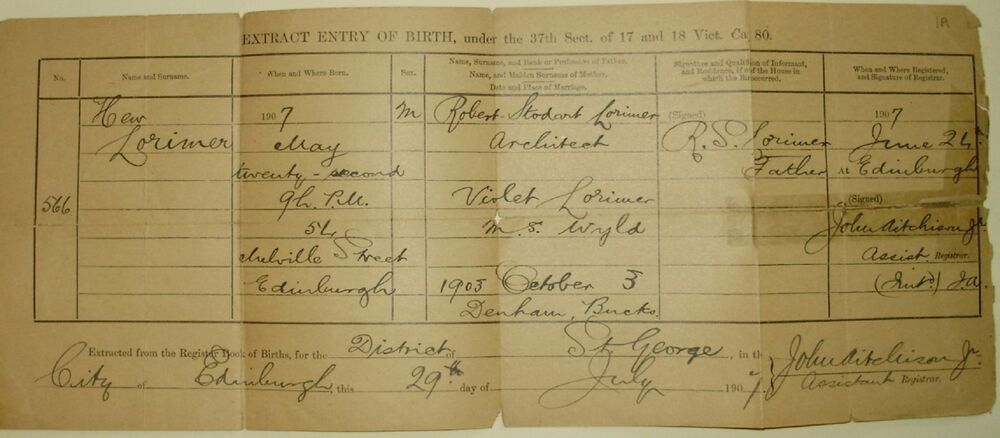 1A
EXTRACT ENTRY OF BIRTH, under the 37th Sect. of 17 and 18 Vict. Cap 80.
No.
Name and Surname.
When and Where Born.
Sex.
Name, Surname, and Rank or Profession of Father.
Name, and Maiden Surname of Mother.
Date and Place of Marriage.
Signature and Qualification of Informant,
and Residence, if out of the House in
which the Birth occurred.
When and Where Registered,
and Signature of Registrar.
566
Hew
Lorimer
1907
May
twenty-second
9h. P.M.
54
Melville Street
Edinburgh
M
Robert Stodart Lorimer
Architect
Violet Lorimer
M.S. Wyld
1903 October 3
Denham, Bucks.
(Signed)
R. S. Lorimer
Father
1907
June
At Edinburgh
(Signed)
John Aitchison Jr.
Assist. Registrar.
(Intd.) J.A.
Extracted from the Register Book of Births, for the District of St George, in the
City of Edinburgh, this 29th day of July 1907. John Aitchison Jr.
Assistant Registrar.